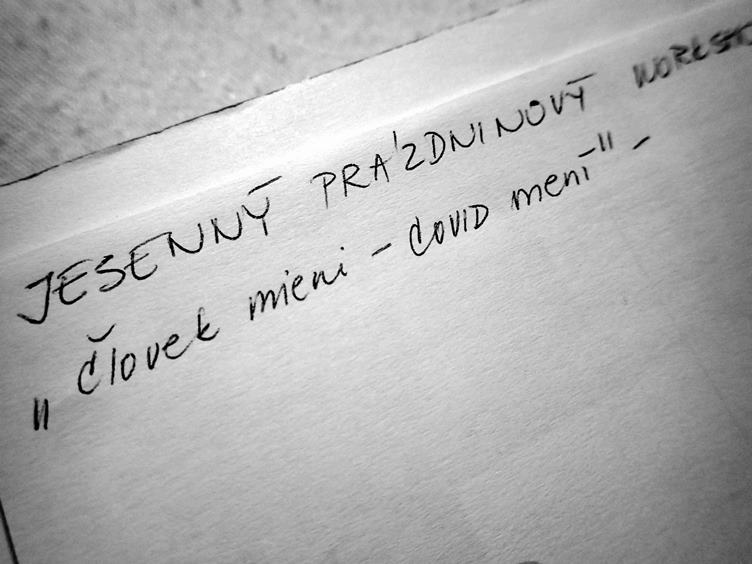 JESENNÝ PRÁZDNINOVÝ
"Človek mieni - Covid mení" -